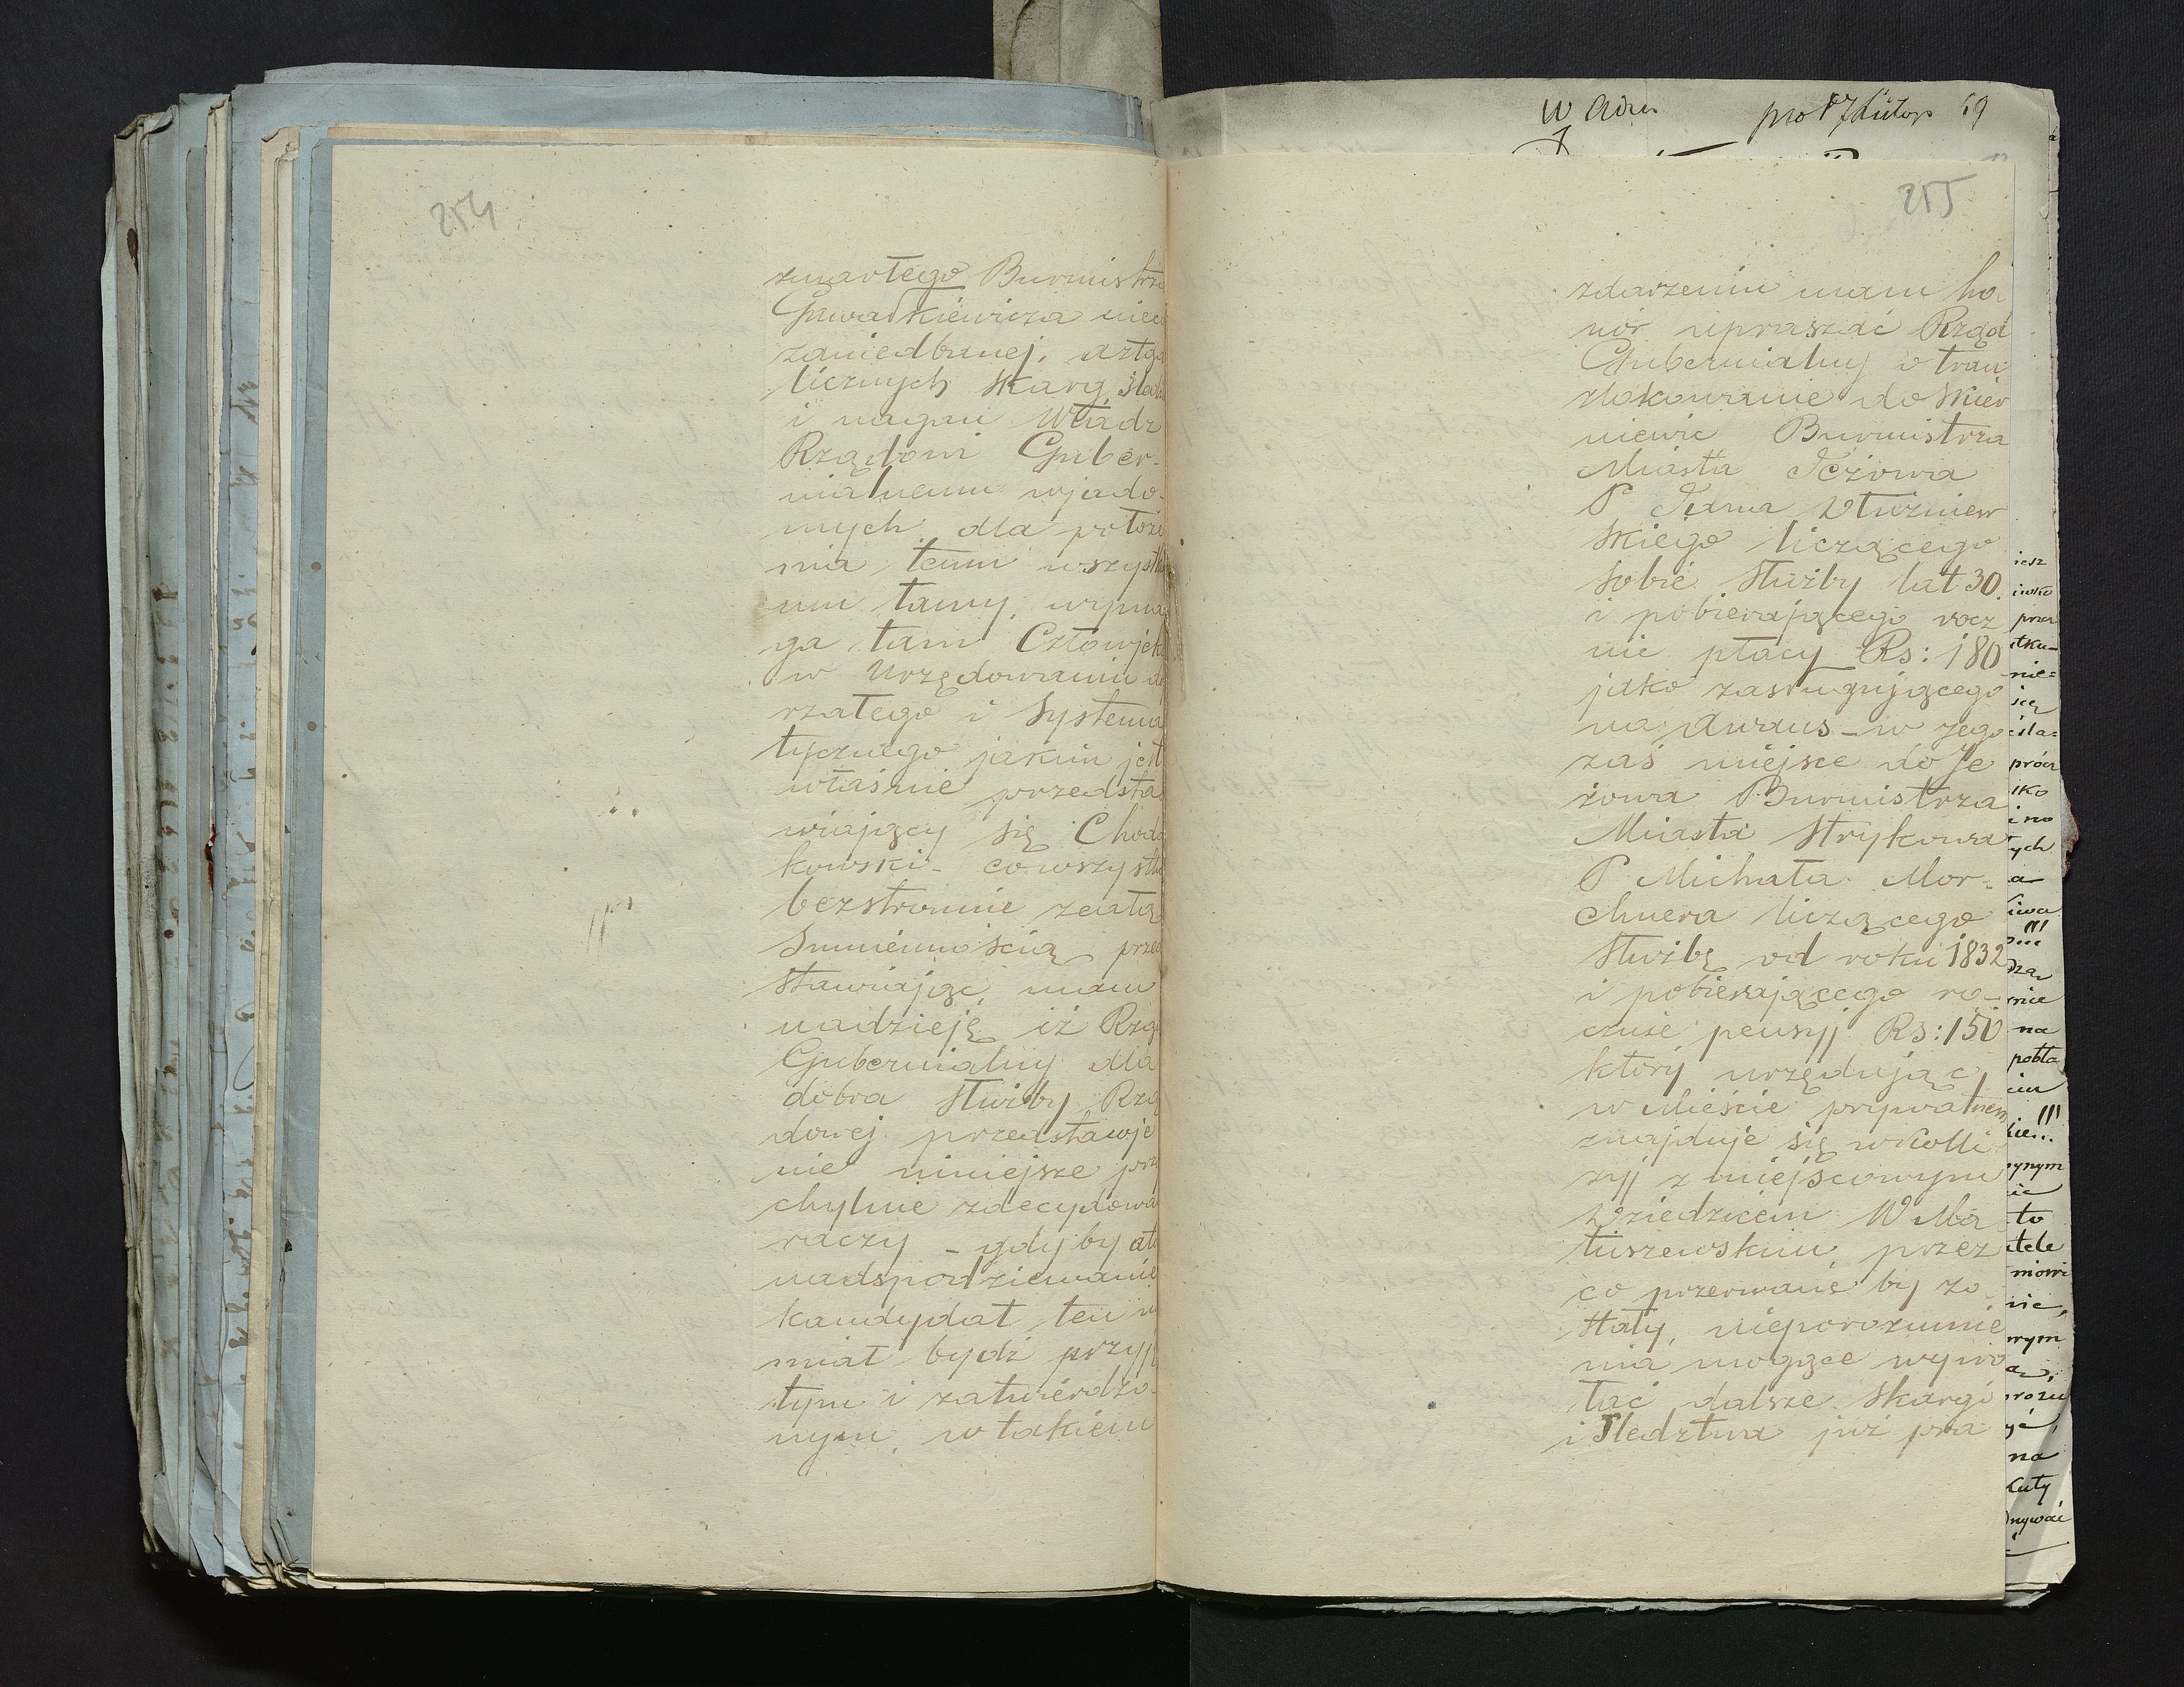 254
zmarłego Burmistrza
Gwadkiewicza nieco
zaniedbanej, a ztąd
licznych skarg, śledz
i nagan Władz
Rządowi Guber-
nialnemu wjado-
mych, dla położe
nia temu wszystki
mu tamy, wyma
ga tam Człowjeka
w Urzędowaniu do
rzałego i Systema
tycznego jakim jest
właśnie przedsta
wiający się Chodo
kowski - co wszystko
bezstronnie z całą
Summiennością przed
stawiając, mam
nadzieję iż Rząd
Gubernialny dla
dobra służby Rzą
dowej przedstawje
nie niniejsze przy
chylnie zdecydować
raczy - gdyby ato
nadspodziewanie
kandydat ten nie
miał bydź przyję
tym i zatwierdzo
nym, w takiem
w
pro 19
255
zdarzeniu mam ho
nór upraszać Rząd
Gubernialny o tran
zlokowanie do Skier
niewic Burmistrza
Miasta Jeżowa
P Jana Wtuźniew
skiego liczącego
sobie służby lat 30
i pobierającego rocz
nie płacy Rs: 180
jako zasługującego
na Awans - w jego
zaś miejsce do Je
żowa Burmistrza
Miasta Strykowa
P Michała Mor-
chnera liczącego
Służbę od roku 1832
i pobierającego ro-
cznie pensyj Rs: 150
który urzędując
w Mieście prywatnem
znajduje się w Kolli
zyj z miejscowym
Dziedzicem W Ma
tuszewskim przez
co przerwane by zo
stały, nieporozumie
nia mogące wywo
łać dalsze skargi
i Sledztwa już pra
iesz
iwko
prze
tku-
nie=
się
śla=
prócz
iko
no
ych
a
nie
na
pobła
ynym
to
tele
nie,
wym
na